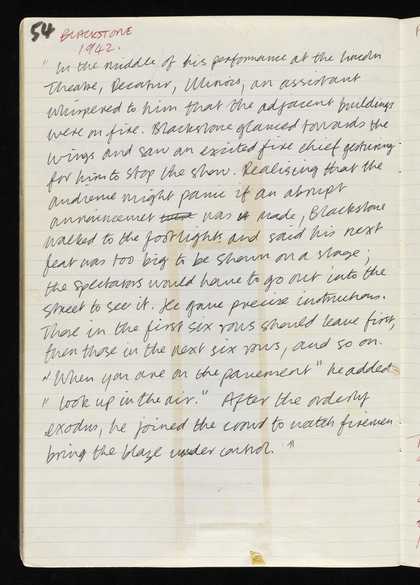 54 BLACKSTONE
1942.
" In the middle of his performance at the Lincoln
Theatre, Decatur, Illinois, an assistant
whispered to him that the adjacent buildings
were on fire. Blackstone glanced towards the
wings and saw an excited fire chief gesturing
for him to stop the show. Realising that the
audience might panic if an abrupt
announcemet was made, Blackstone
walked to the footlights and said his next
feat was too big to be shown on a stage;
the spectators would have to go out into the
street to see it. He gave precise instructions.
Those in the first six rows should leave first,
then those in the next six rows, and so on.
"When you are on the pavement" he added
" look up in the air." After the orderly
exodus, he joined the crowd to watch firemen
bring the blaze under control. "